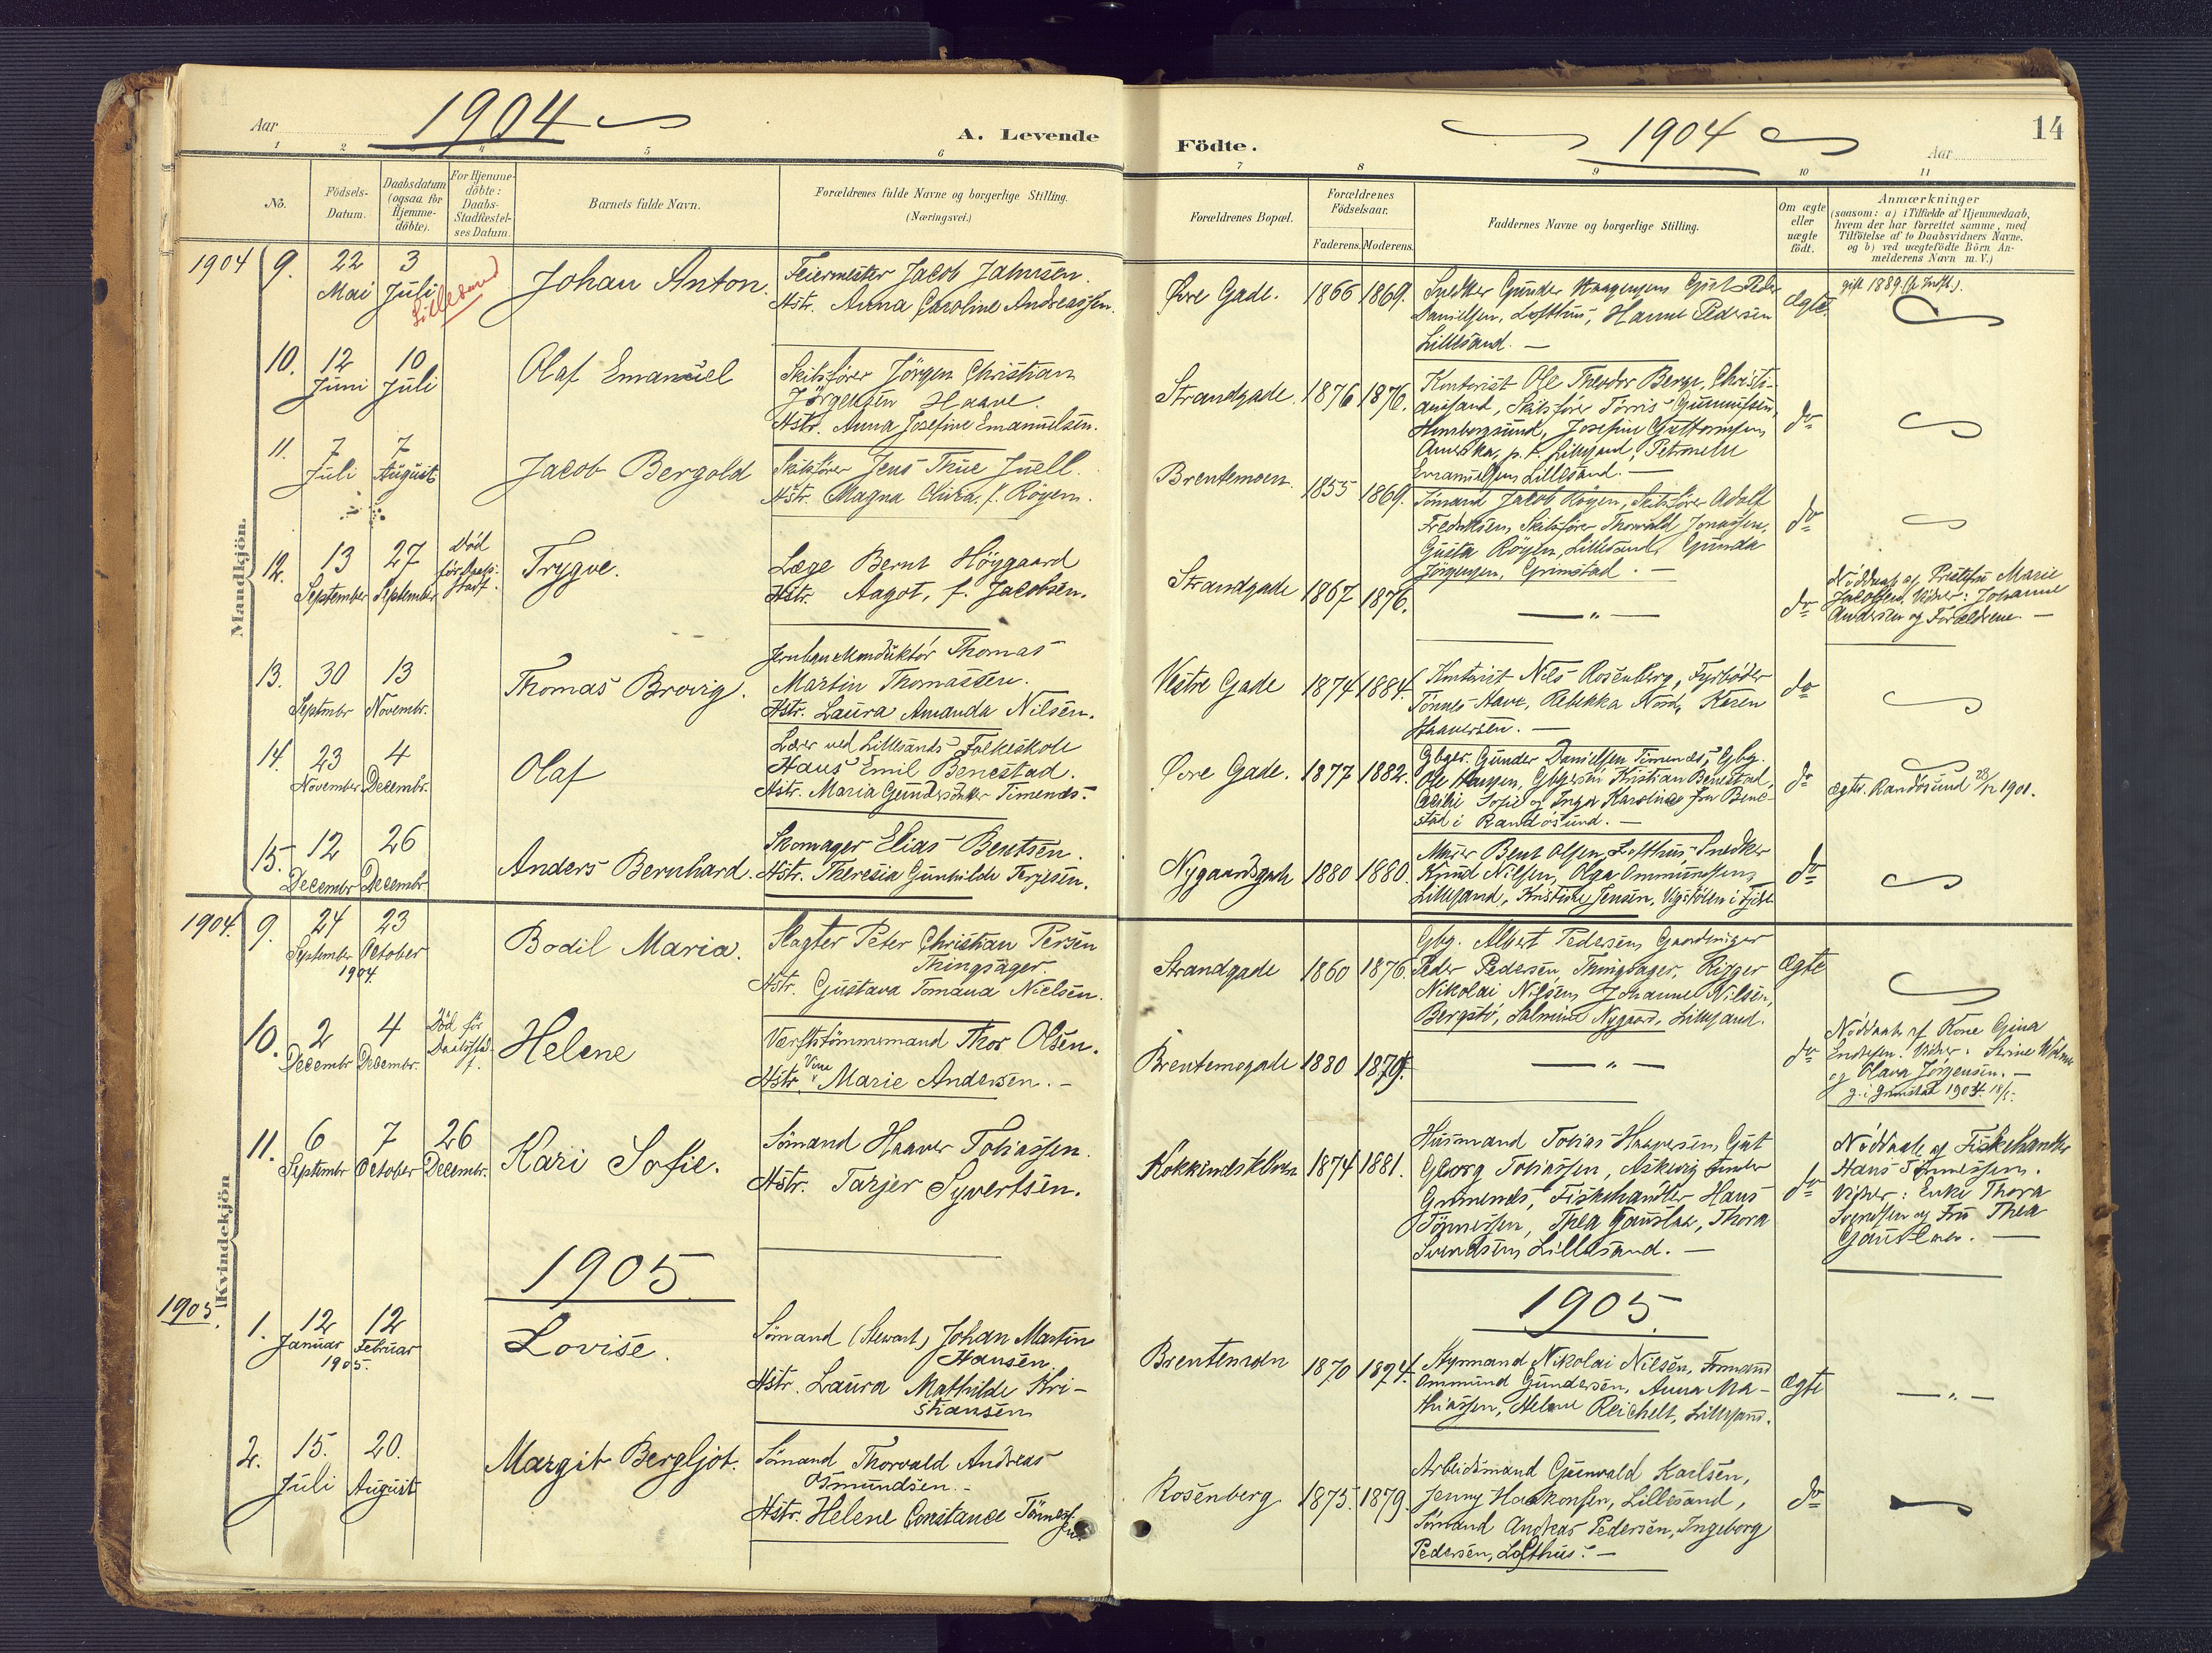 Aar 1904
A. Levende
Födte.
1904
Aar
14
1 2 3 4 5 6 7 8 9 10 11
No.
Födsels-
Datum.
Daabsdatum
(ogsaa for
Hjemme-
döbte).
For Hjemme-
döbte:
Daabs-
Stadfæstel-
ses Datum.
Barnets fulde Navn.
Forældrenes fulde Navne og borgerlige Stilling.
(Næringsvei.)
Forældrenes Bopæl.
Forældrenes
Födselsaar.
Faderens.
Moderens.
Faddernes Navne og borgerlige Stilling.
Om ægte
eller
uægte
födt.
Anmærkninger
(saasom: a) i Tilfælde af Hjemmedaab,
hvem der har forrettet samme, med
Tilföielse af to Daabsvidners Navne.
og b) ved uægtefödte Börn An-
melderens Navn m. V.)
Mandkjön.
1904 9.
22
Mai
3
Juli
Lillesand
Johan Anton.
Feiermester Jacob Jahnsen.
Hstr. Anna Caroline Andreassen.
Øvre Gade.
1866
1869.
Snedker Gunder
Danielsen, Lofthus, Hanne Pedersen
Lillesand. —
ægte.
gift 1889
10.
12
Juni
10
Juli
Olaf Emanuel
Skibsfører Jörgen Christian
Jörgensen Haave.
Hstr. Anna Josefine Emanuelsen.
Strandgade.
1876
1876.
Kontorist Ole Theodor Berge, Christi-
ansand, Skibsfører Tørris Gunnufsen,
Josefine Guttormsen,
Amerika, p. t. Lillesand, Petronelle
Emanuelsen Lillesand. —
do
11.
7
Juli
7
August
Jacob Bergold
Skibsfører Jens Thue Juell.
Hstr. Magna Olivia, f. Röyem.
Brentemoen.
1855
1869.
Sömand Jakob Röyem, Skibsfører Adolf
Fredriksen, Skibsfører Thorvald Jonassen,
Gusta Röyem, Lillesand, Gunda
Jörgensen, Grimstad. —
do
12.
13
September
27
September
Död
før Daabs-
stadf.
Trygve.
Læge Bernt Höygaard
Hstr. Aagot, f. Jacobsen.
Strandgade
1867
1876.
— " —
do
Nöddaab af Frue Marie
Jacobsen. Vidner: Johanne
Andersen og Forældrene. —
13.
30
Septmbr
13
Novembr.
Thomas Brovig.
Jernbanekonduktör Thomas
Martin Thomassen.
Hstr. Laura Amanda Nilsen.
Vestre Gade
1874
1884.
Kontorist Nils Rosenberg, Fyrböder
Tönnes Aave, Rebekka Nord, Karen
Haaversen. —
do
14.
23
November
4
Decembr.
Olaf
Lærer ved Lillesands Folkeskole
Hans Emil Benestad.
Hstr. Maria Gundersdatter Timenes.
Øvre Gade.
1877
1882.
Gbger. Gunder Danielsen Timenes, Gbg.
Ole Hansen, Gbgersön Kristian Benestad,
Sofie og Inga Karoline fra Bene-
stad i Randösund. —
do
ægtev. Randösund 28/12 1901.
15.
12
Decembr
26
Decembr
Anders Bernhard.
Skomager Elias Bentsen.
Hstr. Theresia Gunhilde Terjesen.
Nygaardsgade
1880
1880.
Murer Bent Olsen, Lofthus, Snedker
Knud Nilsen, Olga Ommundsen,
Lillesand, Kristine Jensen,
do
Kvindekjön
1904. 9.
24
September
23
October
1904.
Bodil Maria.
Slagter Peter Christian Persen
Thingsager.
Hstr. Gustava Tomana Nielsen.
Strandgade
1860
1876.
Gbg. Albert Pedersen, Gaardeier
Peder Pedersen, Thingsager, Rigger
Nikolai Nilsen, Johanne Nilsen,
Bergstö, Salmine Nygaard, Lillesand.
ægte
10.
2
Decembr
4
Decembr.
Död før
Daabsstad-
f.
Helene
Værftstömmermand Thor Olsen.
Hstr. Vine Marie Andersen. —
Brentemogade
1880
1879.
— " —
do
Nöddaab af Kone Gina
Endresen. Vidner: Serine
og Olava Jörgensen. —
g. i Grimstad 1904. 18/5.
11.
6
Septmbr
7
October
26
Decembr.
Kari Sofie.
Sömand Haaver Tobiassen.
Hstr. Tarjer Syvertsen.
Kokkindskleven
1874
1881.
Husmand Tobias Haaversen, Gut
Georg Tobiassen, Askevig under
Fiskehandler Hans
Tönnessen, Thea Gauslaa, Thora
Svendsen, Lillesand. —
do
Nöddaab af Fiskehandler
Hans Tönnessen.
Vidner: Enke Thora
Svendsen og Fru Thea
Gauslaa. —
1905.
1905.
1905. 1.
12
Januar
12
Februar
1905.
Lovise.
Sömand (Stewart) Johan Martin
Hansen.
Hstr. Laura Mathilde Kri-
stiansen
Brentemoen
1870
1874.
Styrmand Nikolai Nilsen, Formand
Ommund Gundersen, Anna Ma-
thiassen, Helene Reichelt, Lillesand.
ægte
— " —
2.
15.
Juli
20.
August
Margit Bergljot.
Sömand Thorvald Andreas
Osmundsen. —
Hstr. Helene Constance Tönnes-
sen.
Rosenberg
1875.
1879.
Arbeidsmand Gunvald Karlsen,
Jenny Haakonsen, Lillesand,
Sömand Andreas Pedersen, Ingeborg
Pedersen, Lofthus. —
do